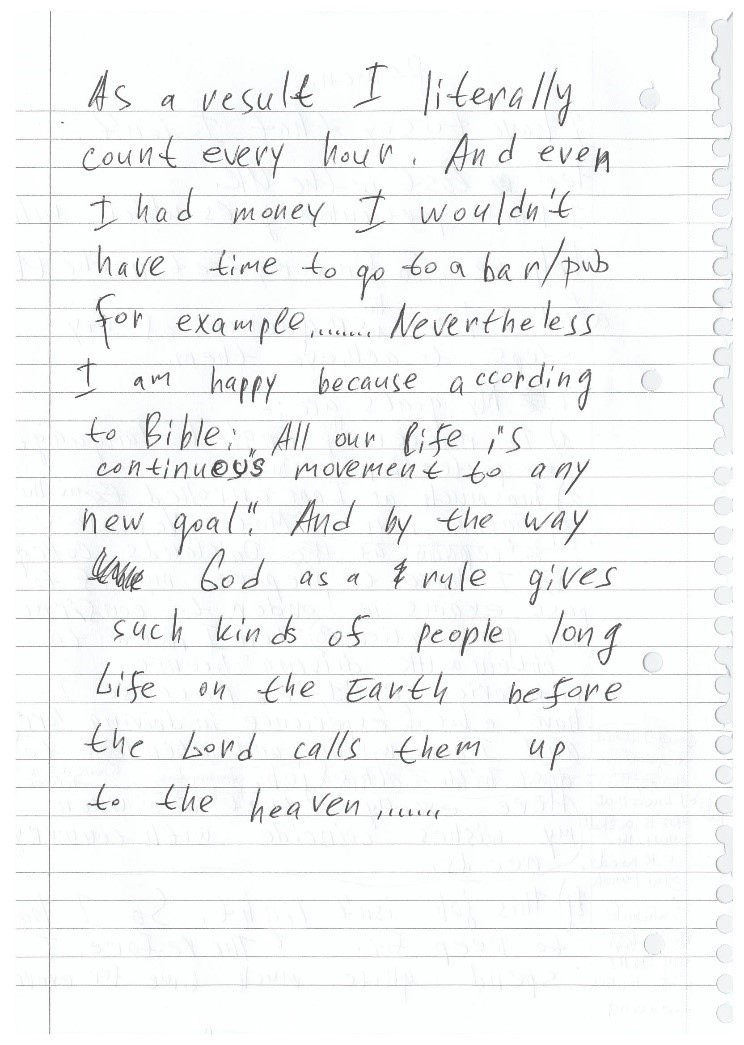 As a result I literally
count every hour. And even
I had money I wouldn't
have time to go to a bar/pub
for example,...... Nevertheless
I am happy because according
to Bible: "All our life is
continueous movement to any
new goal". And by the way
God as a rule gives
such kinds of people long
Life on the Earth before
the Lord calls them up
to the heaven,......